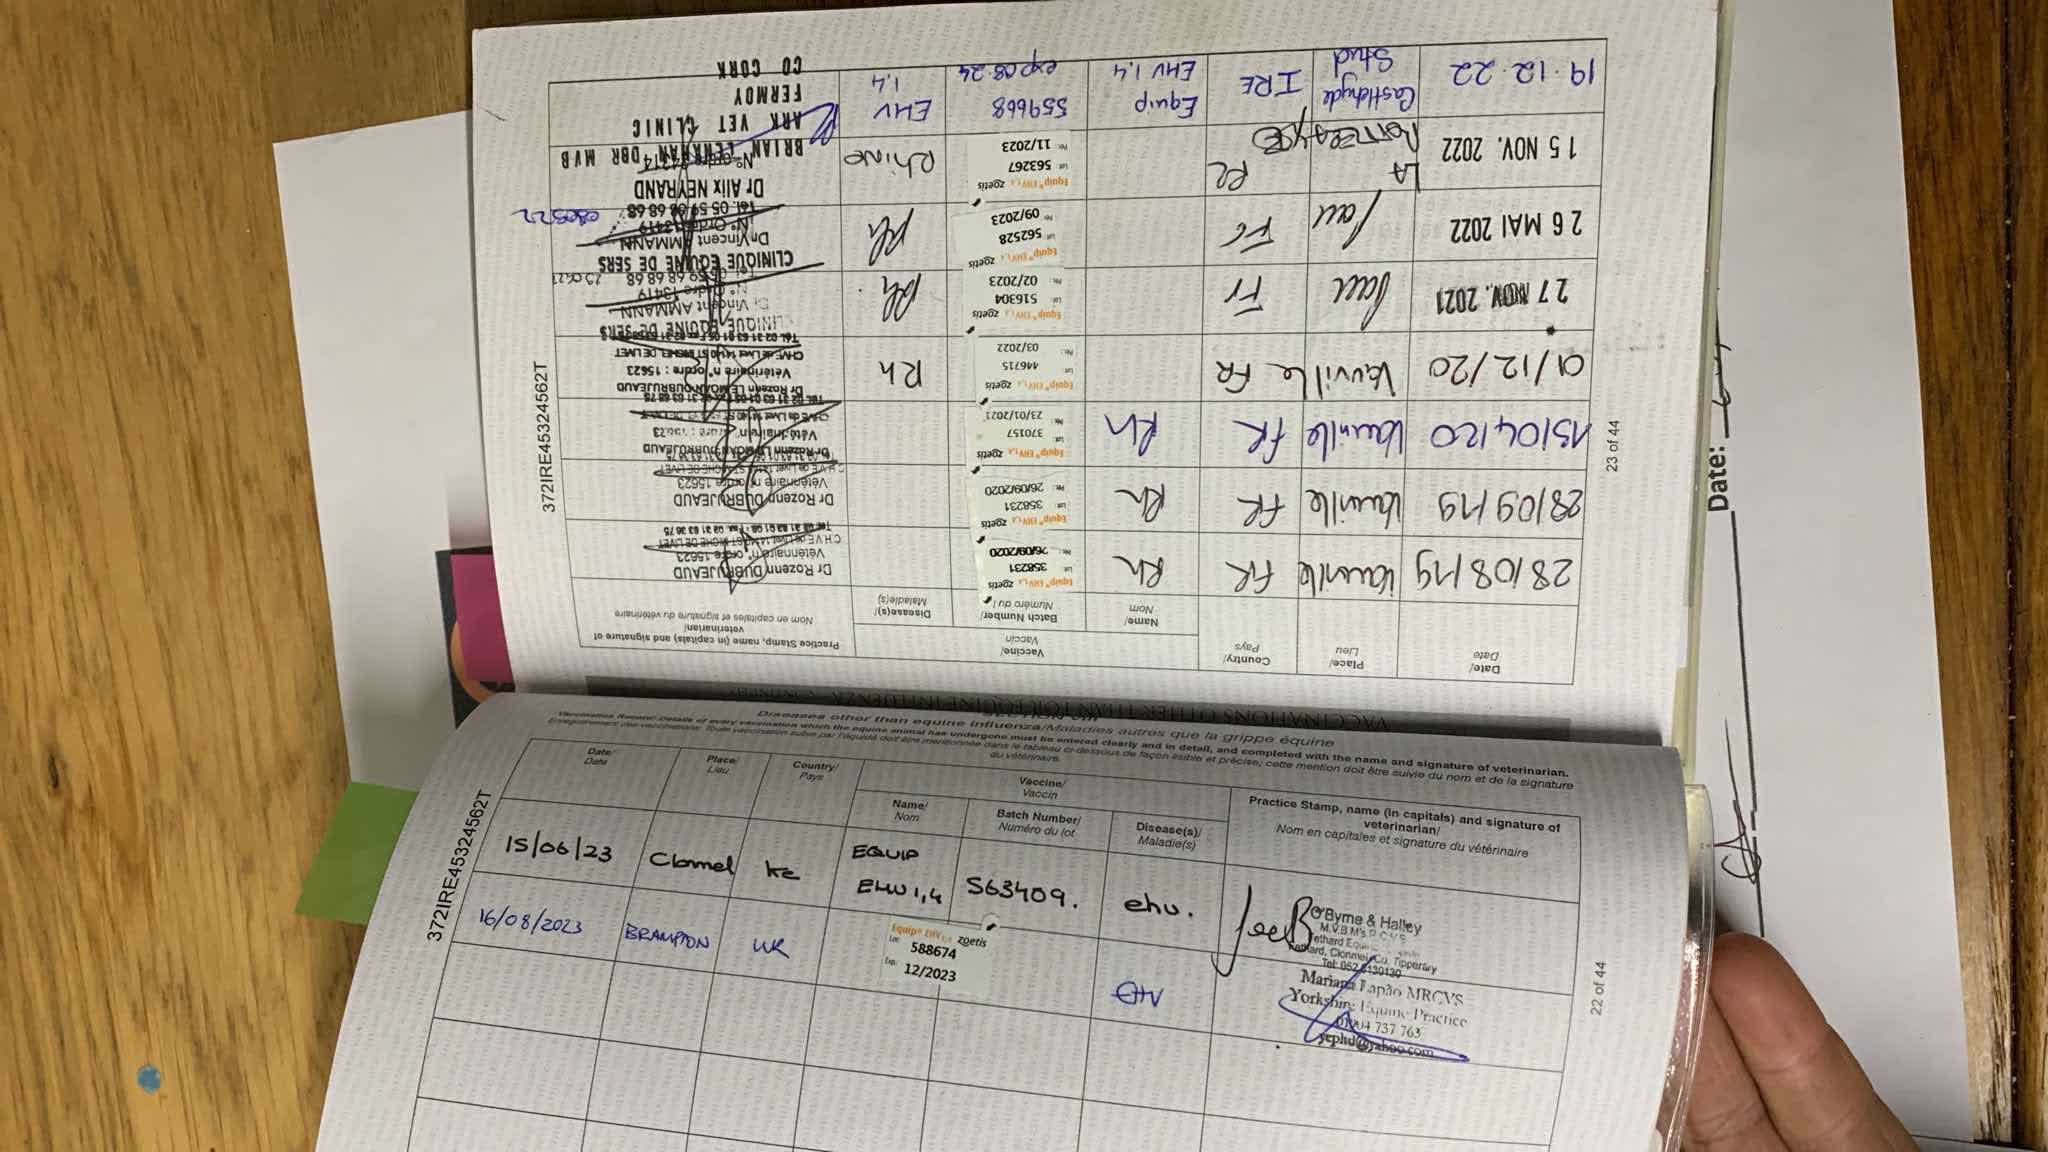 VACCINATIONS OTHER THAN EQUINE INFLUENZA
Date/
Date
Place/
Lieu
Country/
Pays
Vaccine/
Vaccin
Name/
Nom
Batch Number/
Numéro du l
Disease(s)/
Maladie(s)
Practice Stamp, name (in capitals) and signature of
veterinarian/
Nom en capitales et signature du vétérinaire
28/08/19 Vauville FR Rh
Equip® EHV 1,4 zoetis
358231
26/09/2020
Dr Rozenn DUBRUJEAUD
Vétérinaire n° ordre 15623
28/09/19 Vauville FR Rh
Equip® EHV 1,4 zoetis
358231
26/09/2020
Dr Rozenn DUBRUJEAUD
Vétérinaire n° ordre 15623
15/04/20 Vauville FR Rh
Equip® EHV 1,4 zoetis
370157
23/01/2021
01/12/20 Vauville FR
Equip® EHV 1,4 zoetis
446715
03/2022
Rh
Dr Rozenn LE MOAN DUBRUJEAUD
Vétérinaire n° ordre : 15623
27 NOV. 2021 Pau Fr
Equip® EHV 1,4 zoetis
516304
02/2023
Rh
CLINIQUE EQUINE DE SERS
Dr Vincent AMMANN
N° Ordre 13419
26 MAI 2022 Pau Fr
Equip® EHV 1,4 zoetis
562528
09/2023
Rh
CLINIQUE EQUINE DE SERS
Dr Vincent AMMANN
N° Ordre 13419
Tél. 05 59 68 68 68
15 NOV. 2022
LA
Equip® EHV 1,4 zoetis
563267
11/2023
Rhino
Dr Alix NEYRAND
19.12.22 Castlehyde
Stud
IRE
Equip
EHV 1,4
559668
exp 08.24
EHV
1.4
BRIAN LENEHAN DBR MVB
ARK VET CLINIC
FERMOY
CO CORK
372IRE45324562T
23 of 44
Date:
Diseases other than equine influenza/Maladies autres que la grippe équine
Vaccination Record: Details of every vaccination which the equine animal has undergone must be entered clearly and in detail, and completed with the name and signature of veterinarian.
Enregistrement des vaccinations: Toute vaccination subie par l'équidé doit être mentionnée dans le tableau ci-dessous de façon lisible et précise; cette mention doit être suivie du nom et de la signature
du vétérinaire.
Date/
Date
Place/
Lieu
Country/
Pays
Vaccine/
Vaccin
Name/
Nom
Batch Number/
Numéro du lot
Disease(s)/
Maladie(s)
Practice Stamp, name (in capitals) and signature of
veterinarian/
Nom en capitales et signature du vétérinaire
15/06/23 Clonmel
EQUIP
EHV 1,4
563409.
ehv.
O'Byrne & Halley
M.V.B M's R.C.V.S
Fethard, Clonmel, Co. Tipperary
16/08/2023 BRAMPTON UK
Equip® EHV 1,4 zoetis
Lot: 588674
Exp: 12/2023
EHV
Mariana Papão MRCVS
Yorkshire Equine Practice
01904 737 763
yephd@yahoo.com
372IRE45324562T
22 of 44